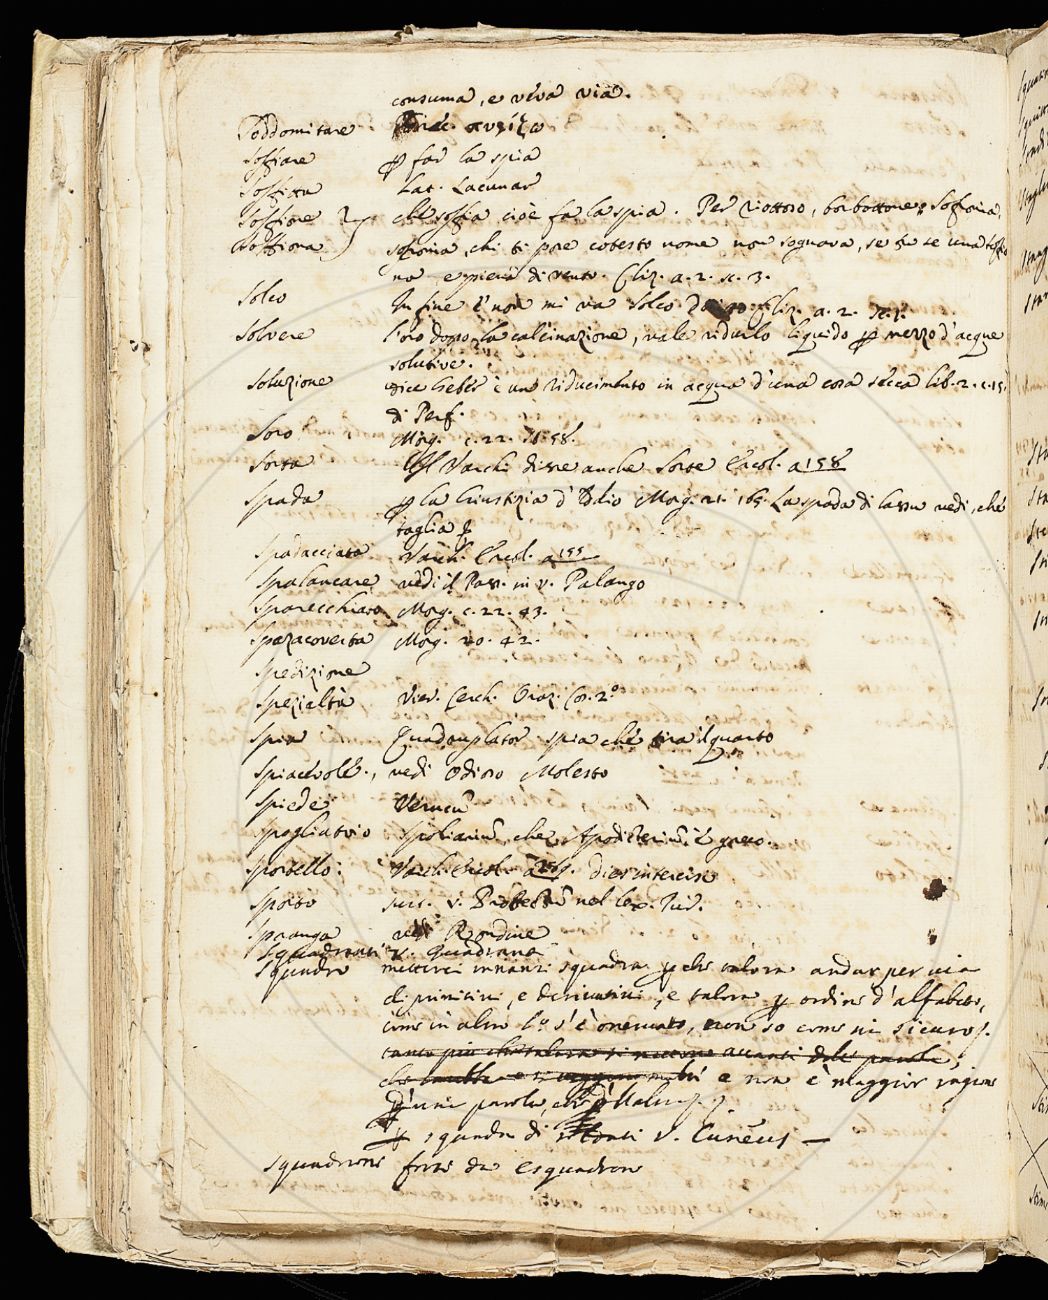 consuma, e viva via.
Soddomitare
Soffiare ꝑ far la spia
Soffitta Lat. Lacunar
Soffione che soffia cioè fa la spia. Per riottoso, borbottone; Soffiona,
Soffiona chi ti pose cotesto nome non sognava, se tu se una soffio
na e piena di vento. Cliz. a. 2. sc. 3.
Solco In fine e' non mi va solco Cliz. a. 2.
Solvere l'oro dopo la calcinazione, vale ridurlo liquido ꝑ mezzo d'acque
solutive.
Soluzione dice Geber è un riducimento in acqua d'una cosa secca lib. 2. c. 15.
di Perf.
Soro Morg. c. 22.
Sorta Il Varchi disse anche Sorte Ercol. a 158
Spada ꝑ la Giustizia d'Iddio Morg. 21. 165. La spada di lassu vedi, che
taglia
Spadacciata Varch. Ercol. a 155
Spalancare vedi il Pass. in v. Palango
Sparecchiato Morg. c. 22. 43.
Spazacoverta Morg. 20. 42.
Spedizione
Spezialtà Vier. Cerch. Oraz. Cos. 2.º
Spia Quadruplator spia che tira il quarto
Spiacevole, vedi Odioso Molesto
Spiede Verucu
Spogliatoio Spoliariũ, che Apoditeriũ è greco.
Sportello: Varch. Ercol. a dies intercisi
Sporto nel lex. Iur.
Spranga vedi Rondine
Squadrante v. Quadrante
Squadra mettersi innanzi squadra ꝑ che talora andar per via
di primitivi, e derivativi, e talora ꝑ ordine d'alfabeto,
come in altro l.º s'è osservato, non so come ni sicuro.
tanto più che talora si mettono avanti delle parole,
e non è maggior ragione
d'una parola, che d'
ꝑ squadra di v. Cuneus —
squadrone forse da esquadron